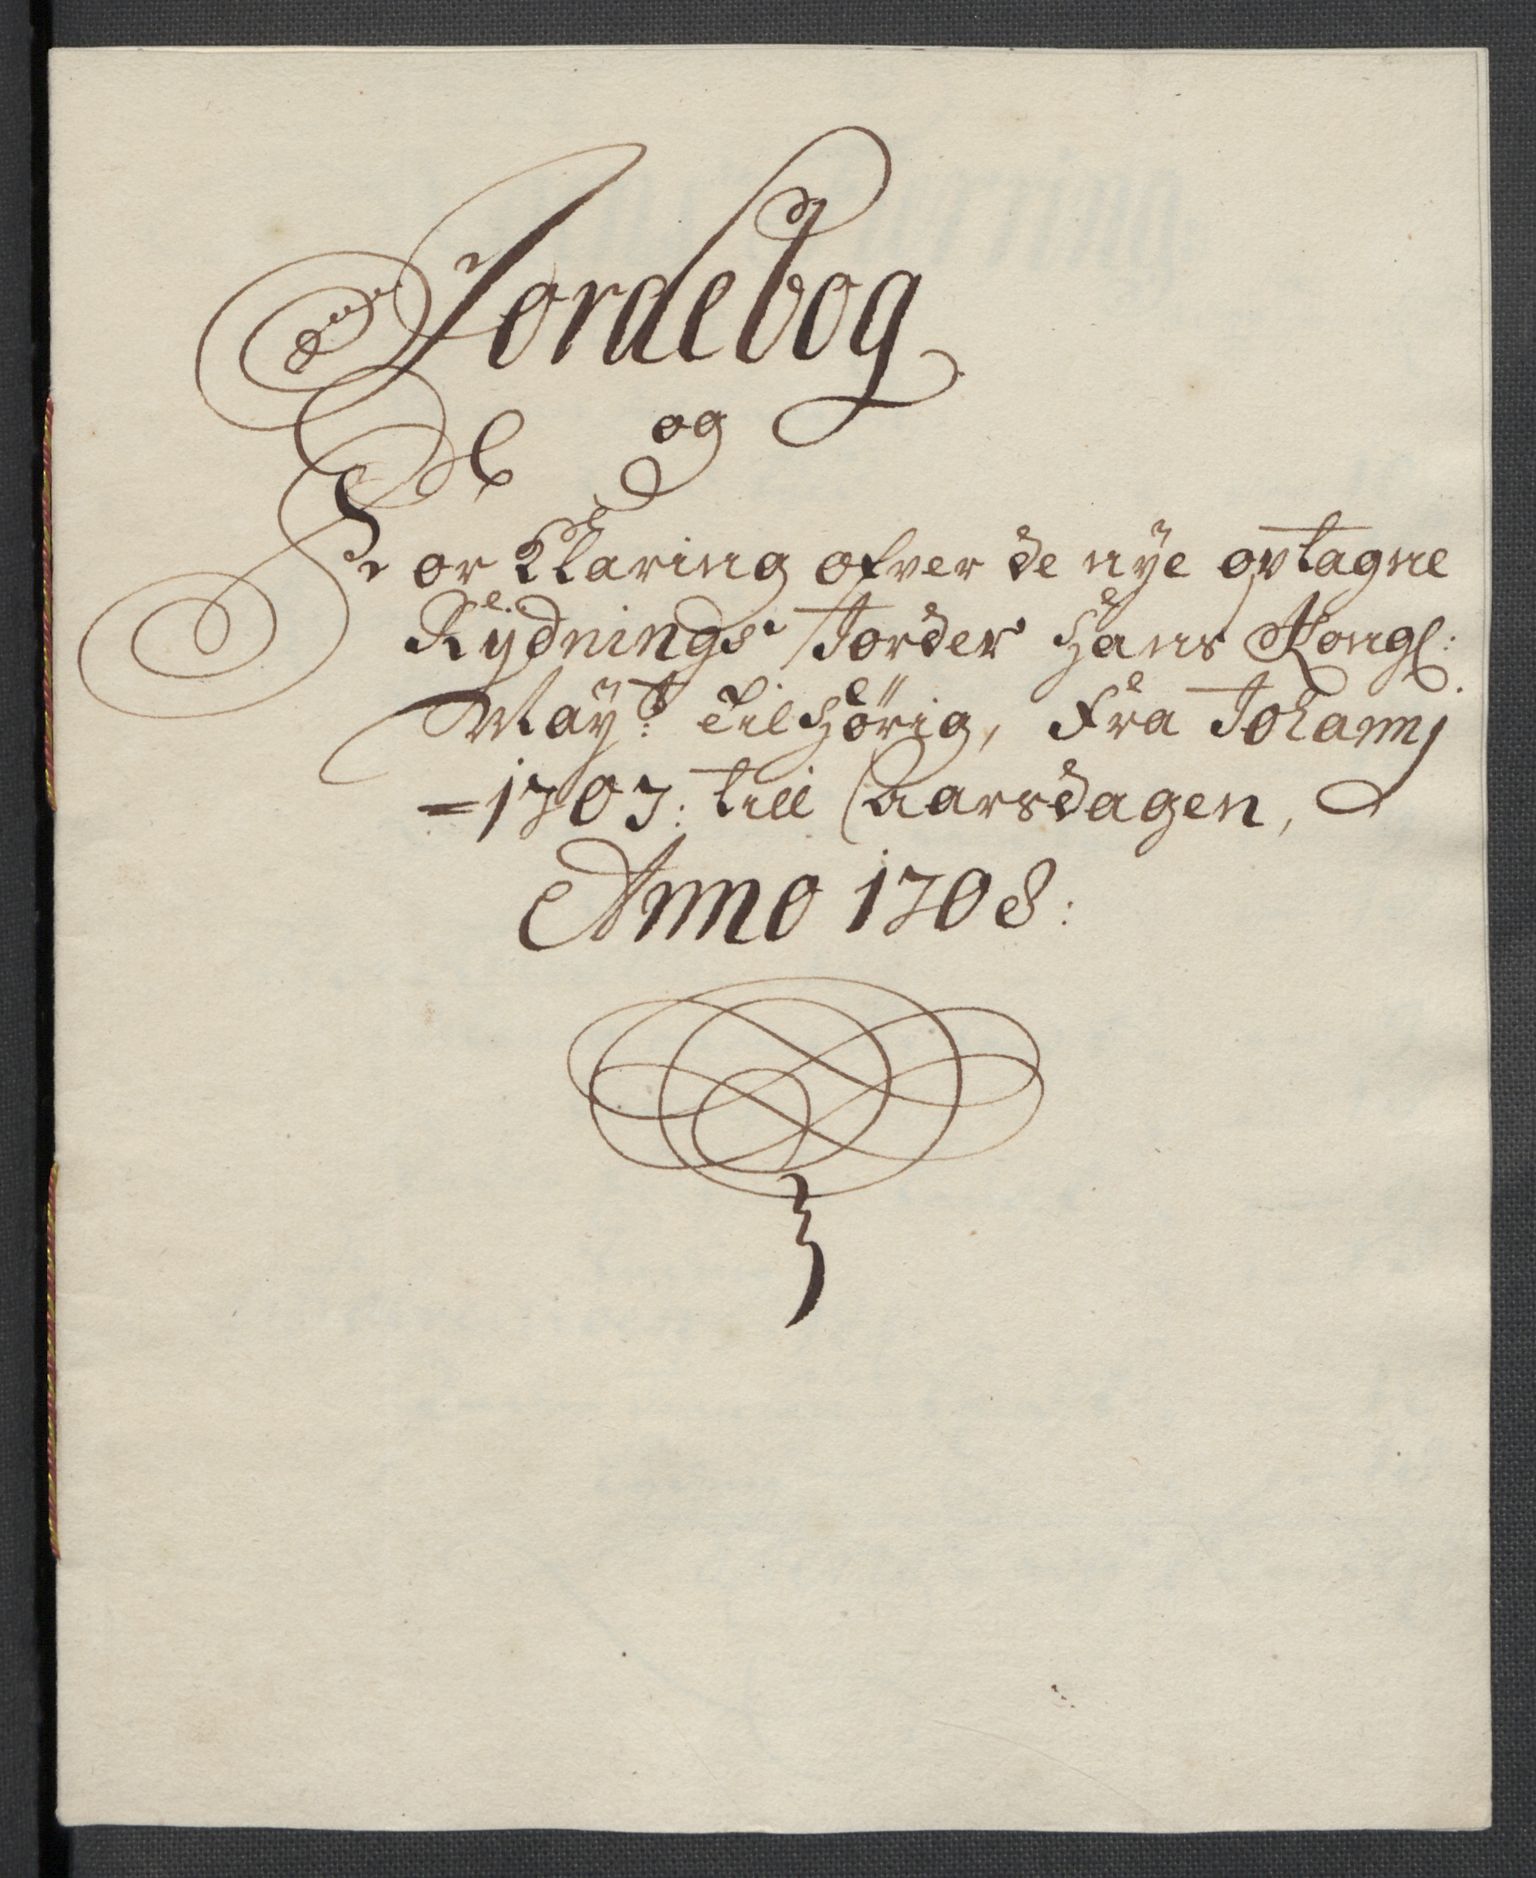 Jordebog
og
For Klaring ofver de nye optagne
Rydnings Jorder Hans Kongl:
Mayt: Tilhörig, Fra Johannj
=1707: till Aarsdagen,
Anno 1708: